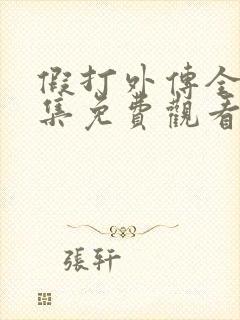 假打外傳全
集免費觀看
張軒